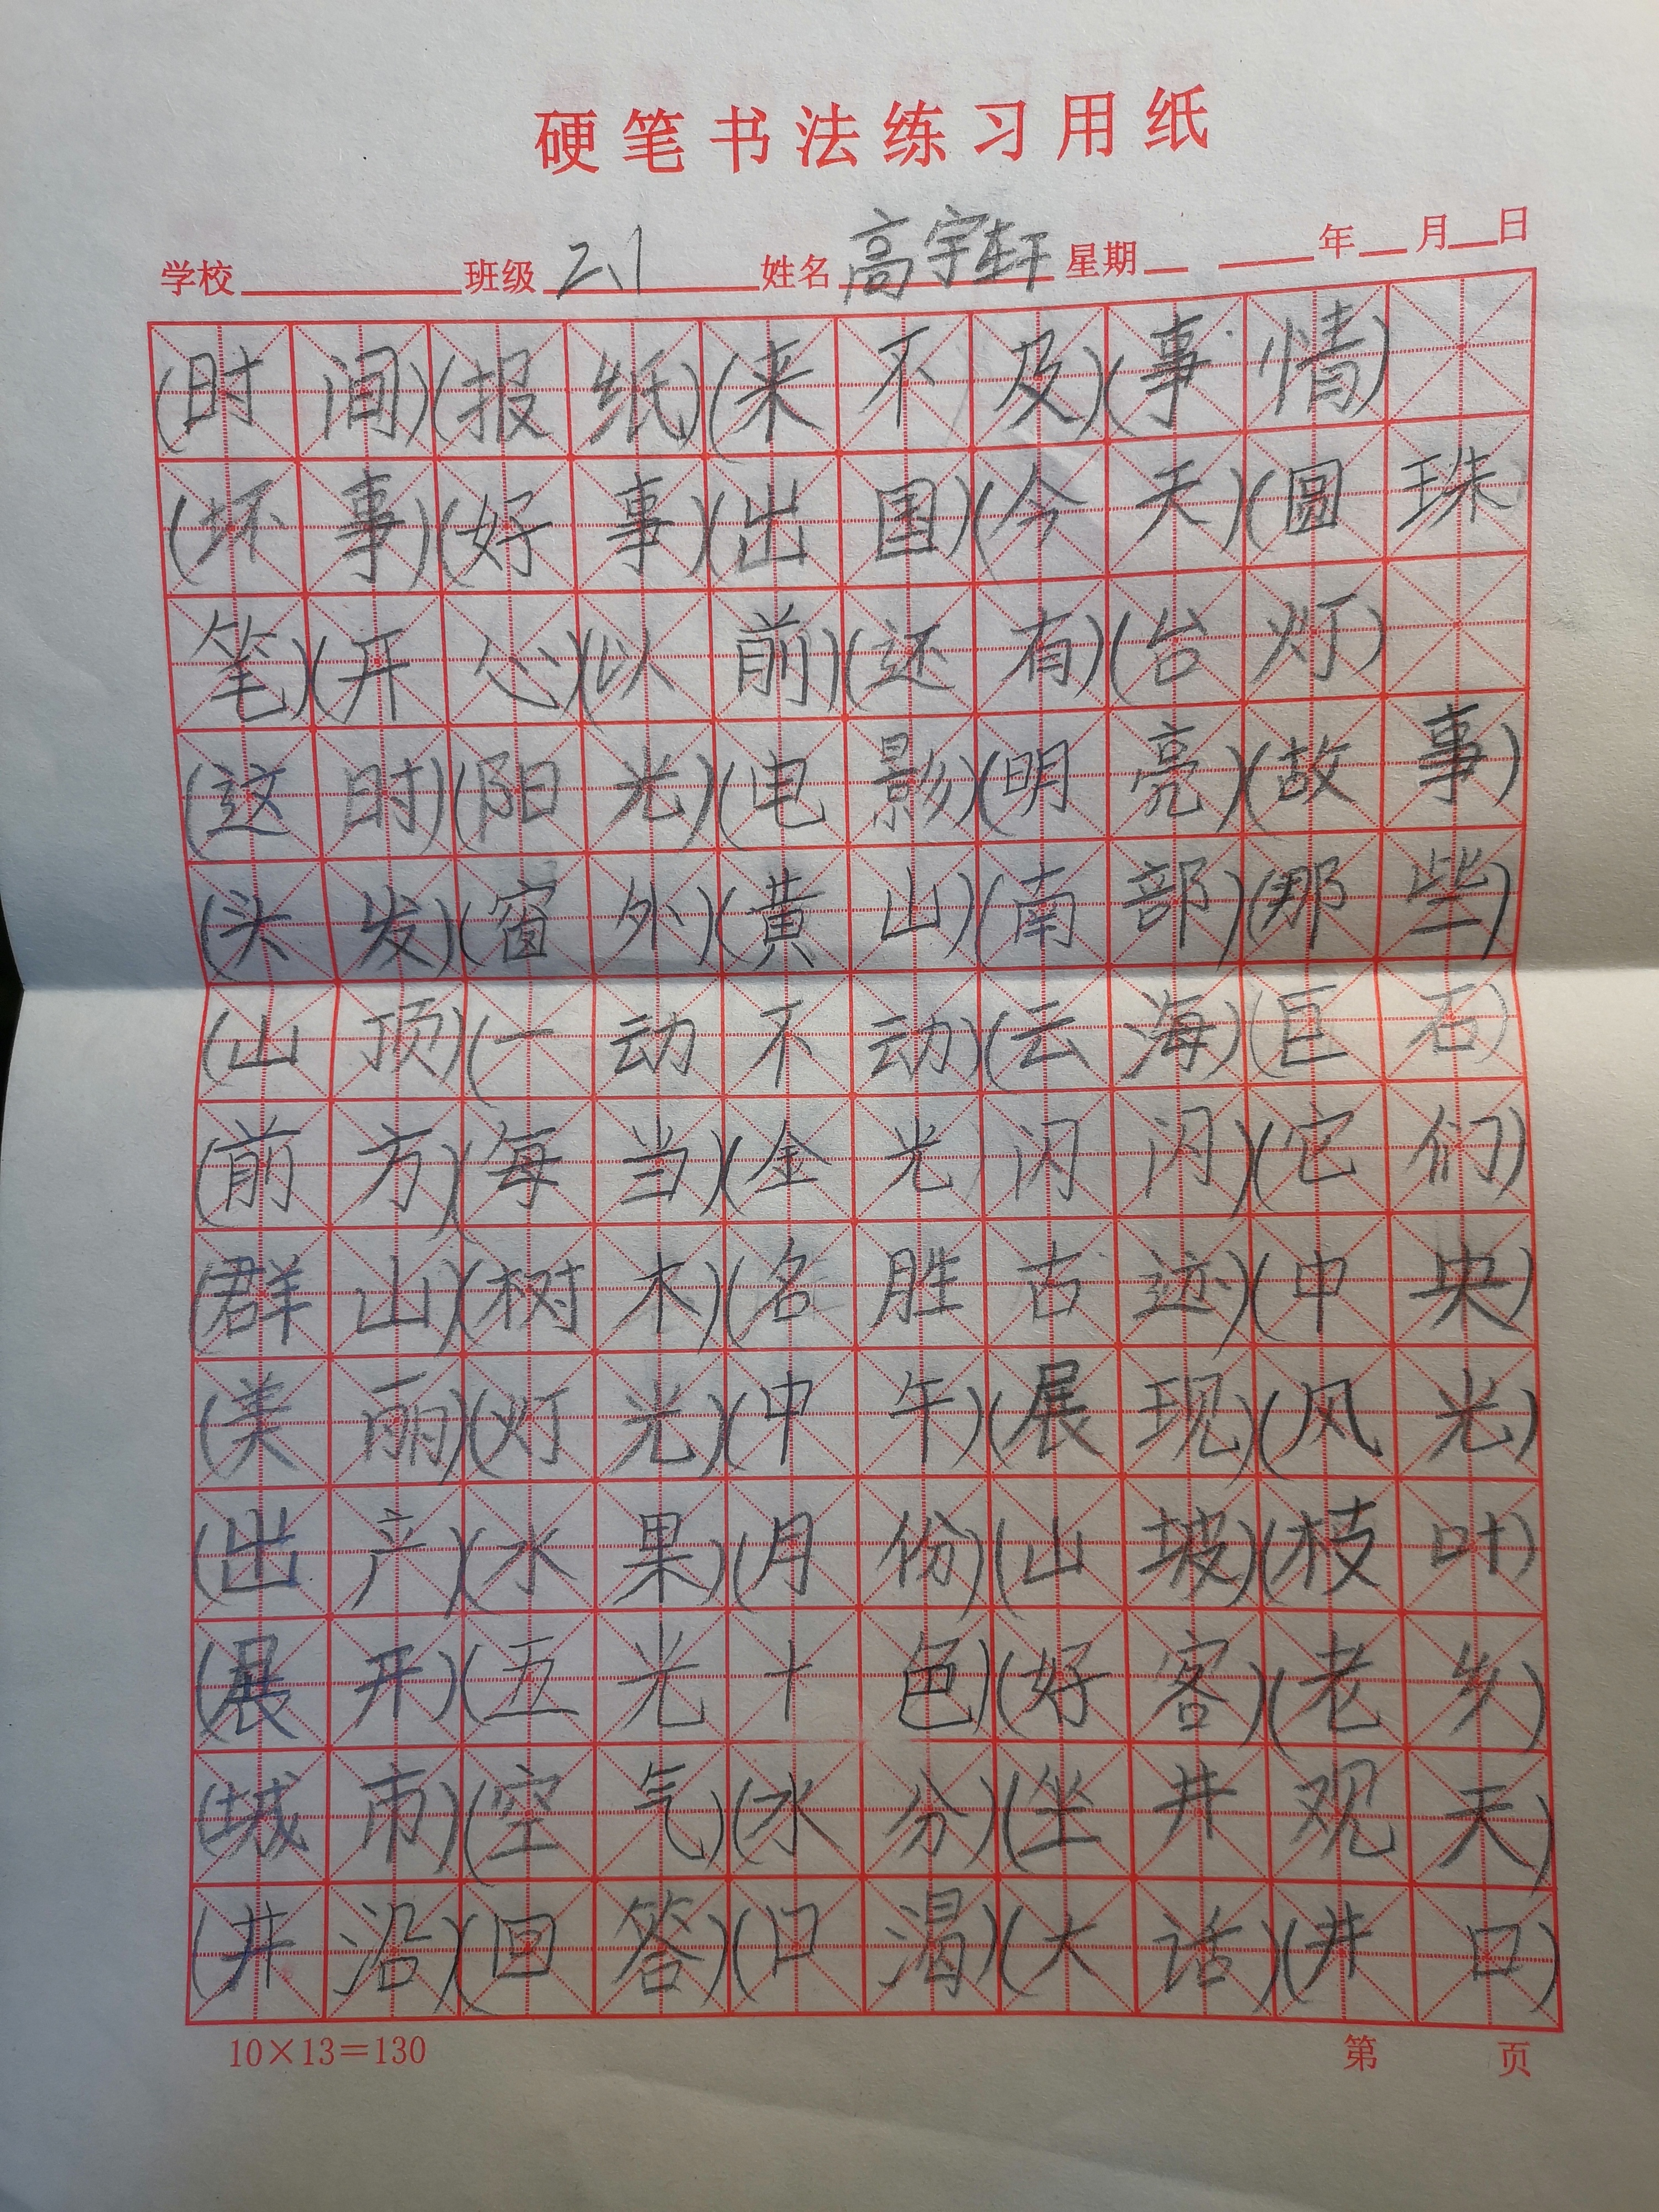 硬笔书法练习用纸
学校 班级 2、1 姓名 高宇轩 星期 年 月 日
(时间)(报纸)(来不及)(事情)
(坏事)(好事)(出国)(今天)(圆珠
笔)(开心)(以前)(还有)(台灯)
(这时)(阳光)(电影)(明亮)(故事)
(头发)(窗外)(黄山)(南部)(那些)
(山顶)(一动不动)(云海)(巨石)
(前方)(每当)(金光闪闪)(它们)
(群山)(树木)(名胜古迹)(中央)
(美丽)(灯光)(中午)(展现)(风光)
(出产)(水果)(月份)(山坡)(枝叶)
(展开)(五光十色)(好客)(老乡)
(城市)(空气)(水分)(坐井观天)
(井沿)(回答)(口渴)(大话)(井口)
10×13=130 第 页